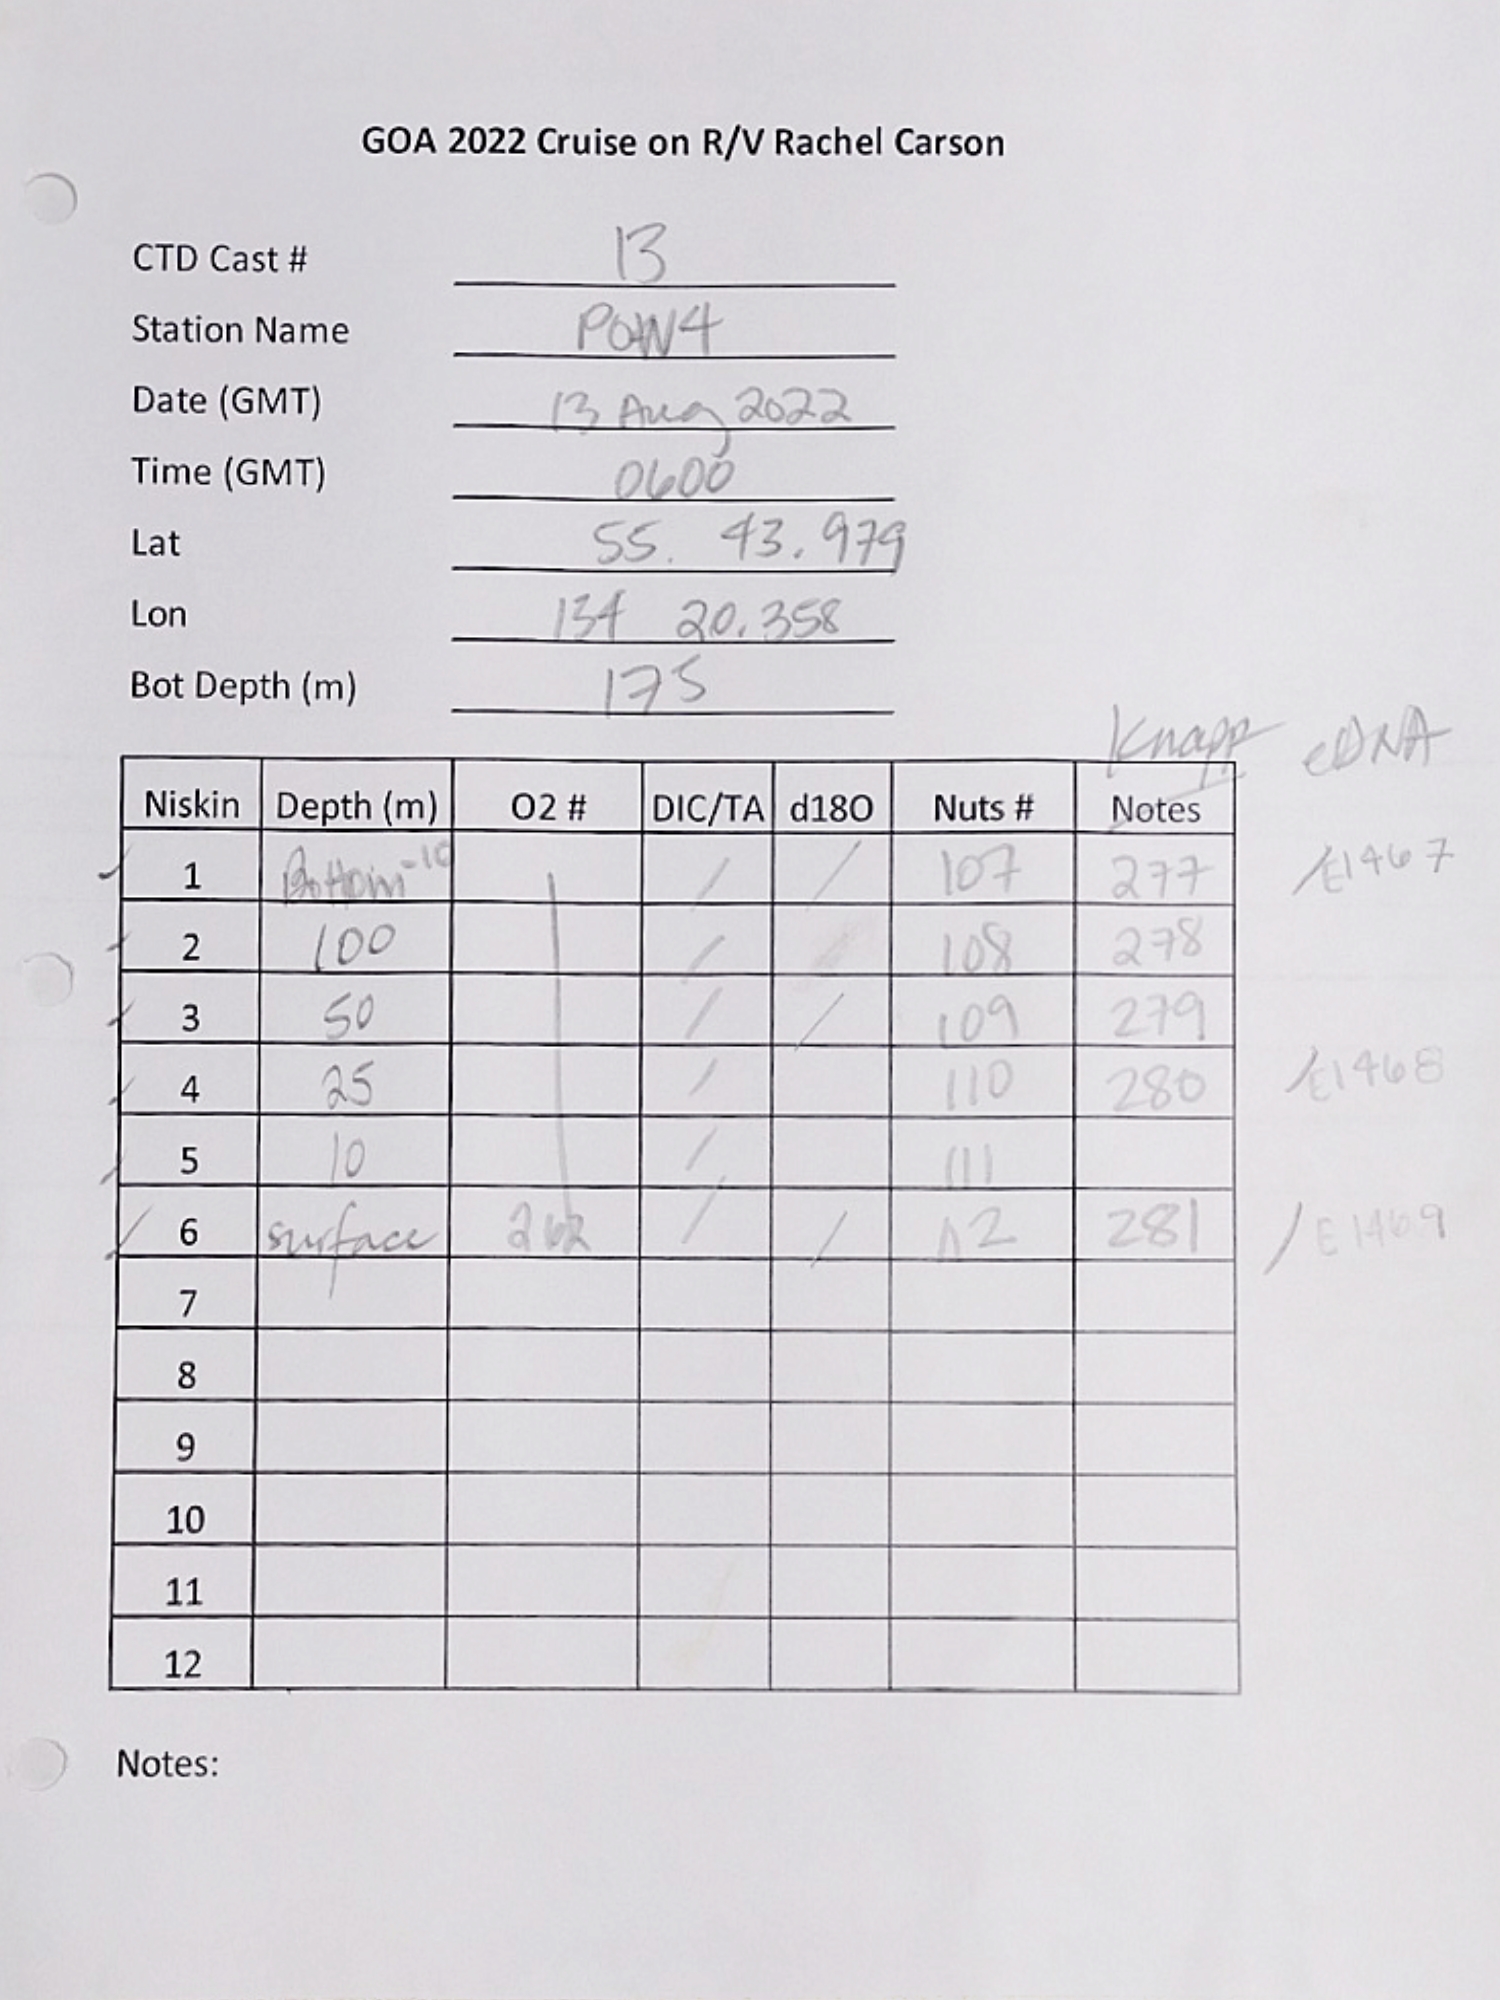 GOA 2022 Cruise on R/V Rachel Carson
CTD Cast # 13
Station Name POW4
Date (GMT) 13 Aug 2022
Time (GMT) 0600
Lat 55. 43.979
Lon 134 20.358
Bot Depth (m) 175
Knapp eDNA
Niskin Depth (m) O2 # DIC/TA d18O Nuts # Notes
1 Bottom-10 / / 107 277 /E1467
2 100 / 108 278
3 50 / / 109 279
4 25 / 110 280 /E1468
5 10 / 111
6 surface 262 / / 112 281 / E1469
7
8
9
10
11
12
Notes: